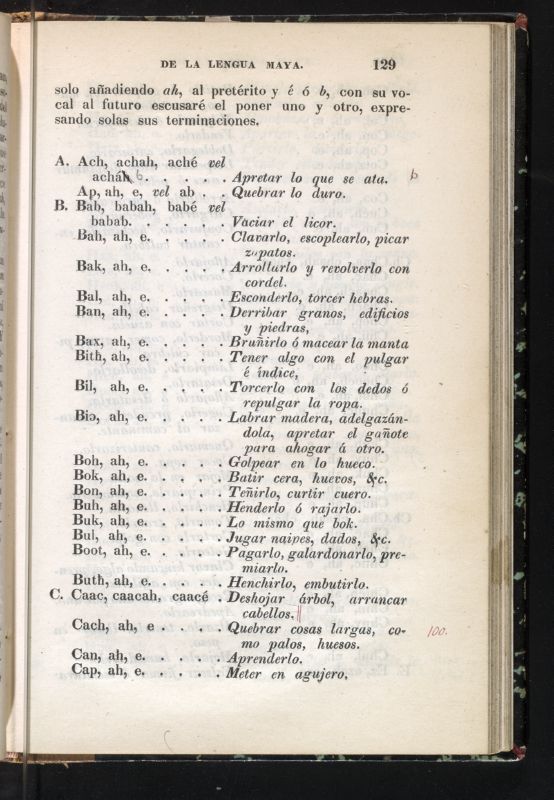 DE LA LENGUA MAYA. 129
solo añadiendo ah, al pretérito y é ó b, con su vo-
cal al futuro escusaré el poner uno y otro, expre-
sando solas sus terminaciones.
A. Ach, achah, aché vel
acháh b. . . . . . Apretar lo que se ata. b
Ap, ah, e, vel ab . . Quebrar lo duro.
B. Bab, babah, babé vel
babab. . . . . . Vaciar el licor.
Bah, ah, e. . . . . Clavarlo, escoplearlo, picar
zapatos.
Bak, ah, e. . . . . Arrollarlo y revolverlo con
cordel.
Bal, ah, e. . . . . Esconderlo, torcer hebras.
Ban, ah, e. . . . . Derribar granos, edificios
y piedras,
Bax, ah, e. . . . . Bruñirlo ó macear la manta
Bith, ah, e. . . . . Tener algo con el pulgar
é índice,
Bil, ah, e. . . . . Torcerlo con los dedos ó
repulgar la ropa.
Biɔ, ah, e. . . . . Labrar madera, adelgazán-
dola, apretar el gañote
para ahogar á otro.
Boh, ah, e. . . . . Golpear en lo hueco.
Bok, ah, e. . . . . Batir cera, huevos, &c.
Bon, ah, e. . . . . Teñirlo, curtir cuero.
Buh, ah, e. . . . . Henderlo ó rajarlo.
Buk, ah, e. . . . . Lo mismo que bok.
Bul, ah, e. . . . . Jugar naipes, dados, &c.
Boot, ah, e. . . . . Pagarlo, galardonarlo, pre-
miarlo.
Buth, ah, e. . . . . Henchirlo, embutirlo.
C. Caac, caacah, caacé . Deshojar árbol, arrancar
cabellos.
Cach, ah, e . . . . Quebrar cosas largas, co- 100.
mo palos, huesos.
Can, ah, e. . . . . Aprenderlo.
Cap, ah, e. . . . . Meter en agujero,